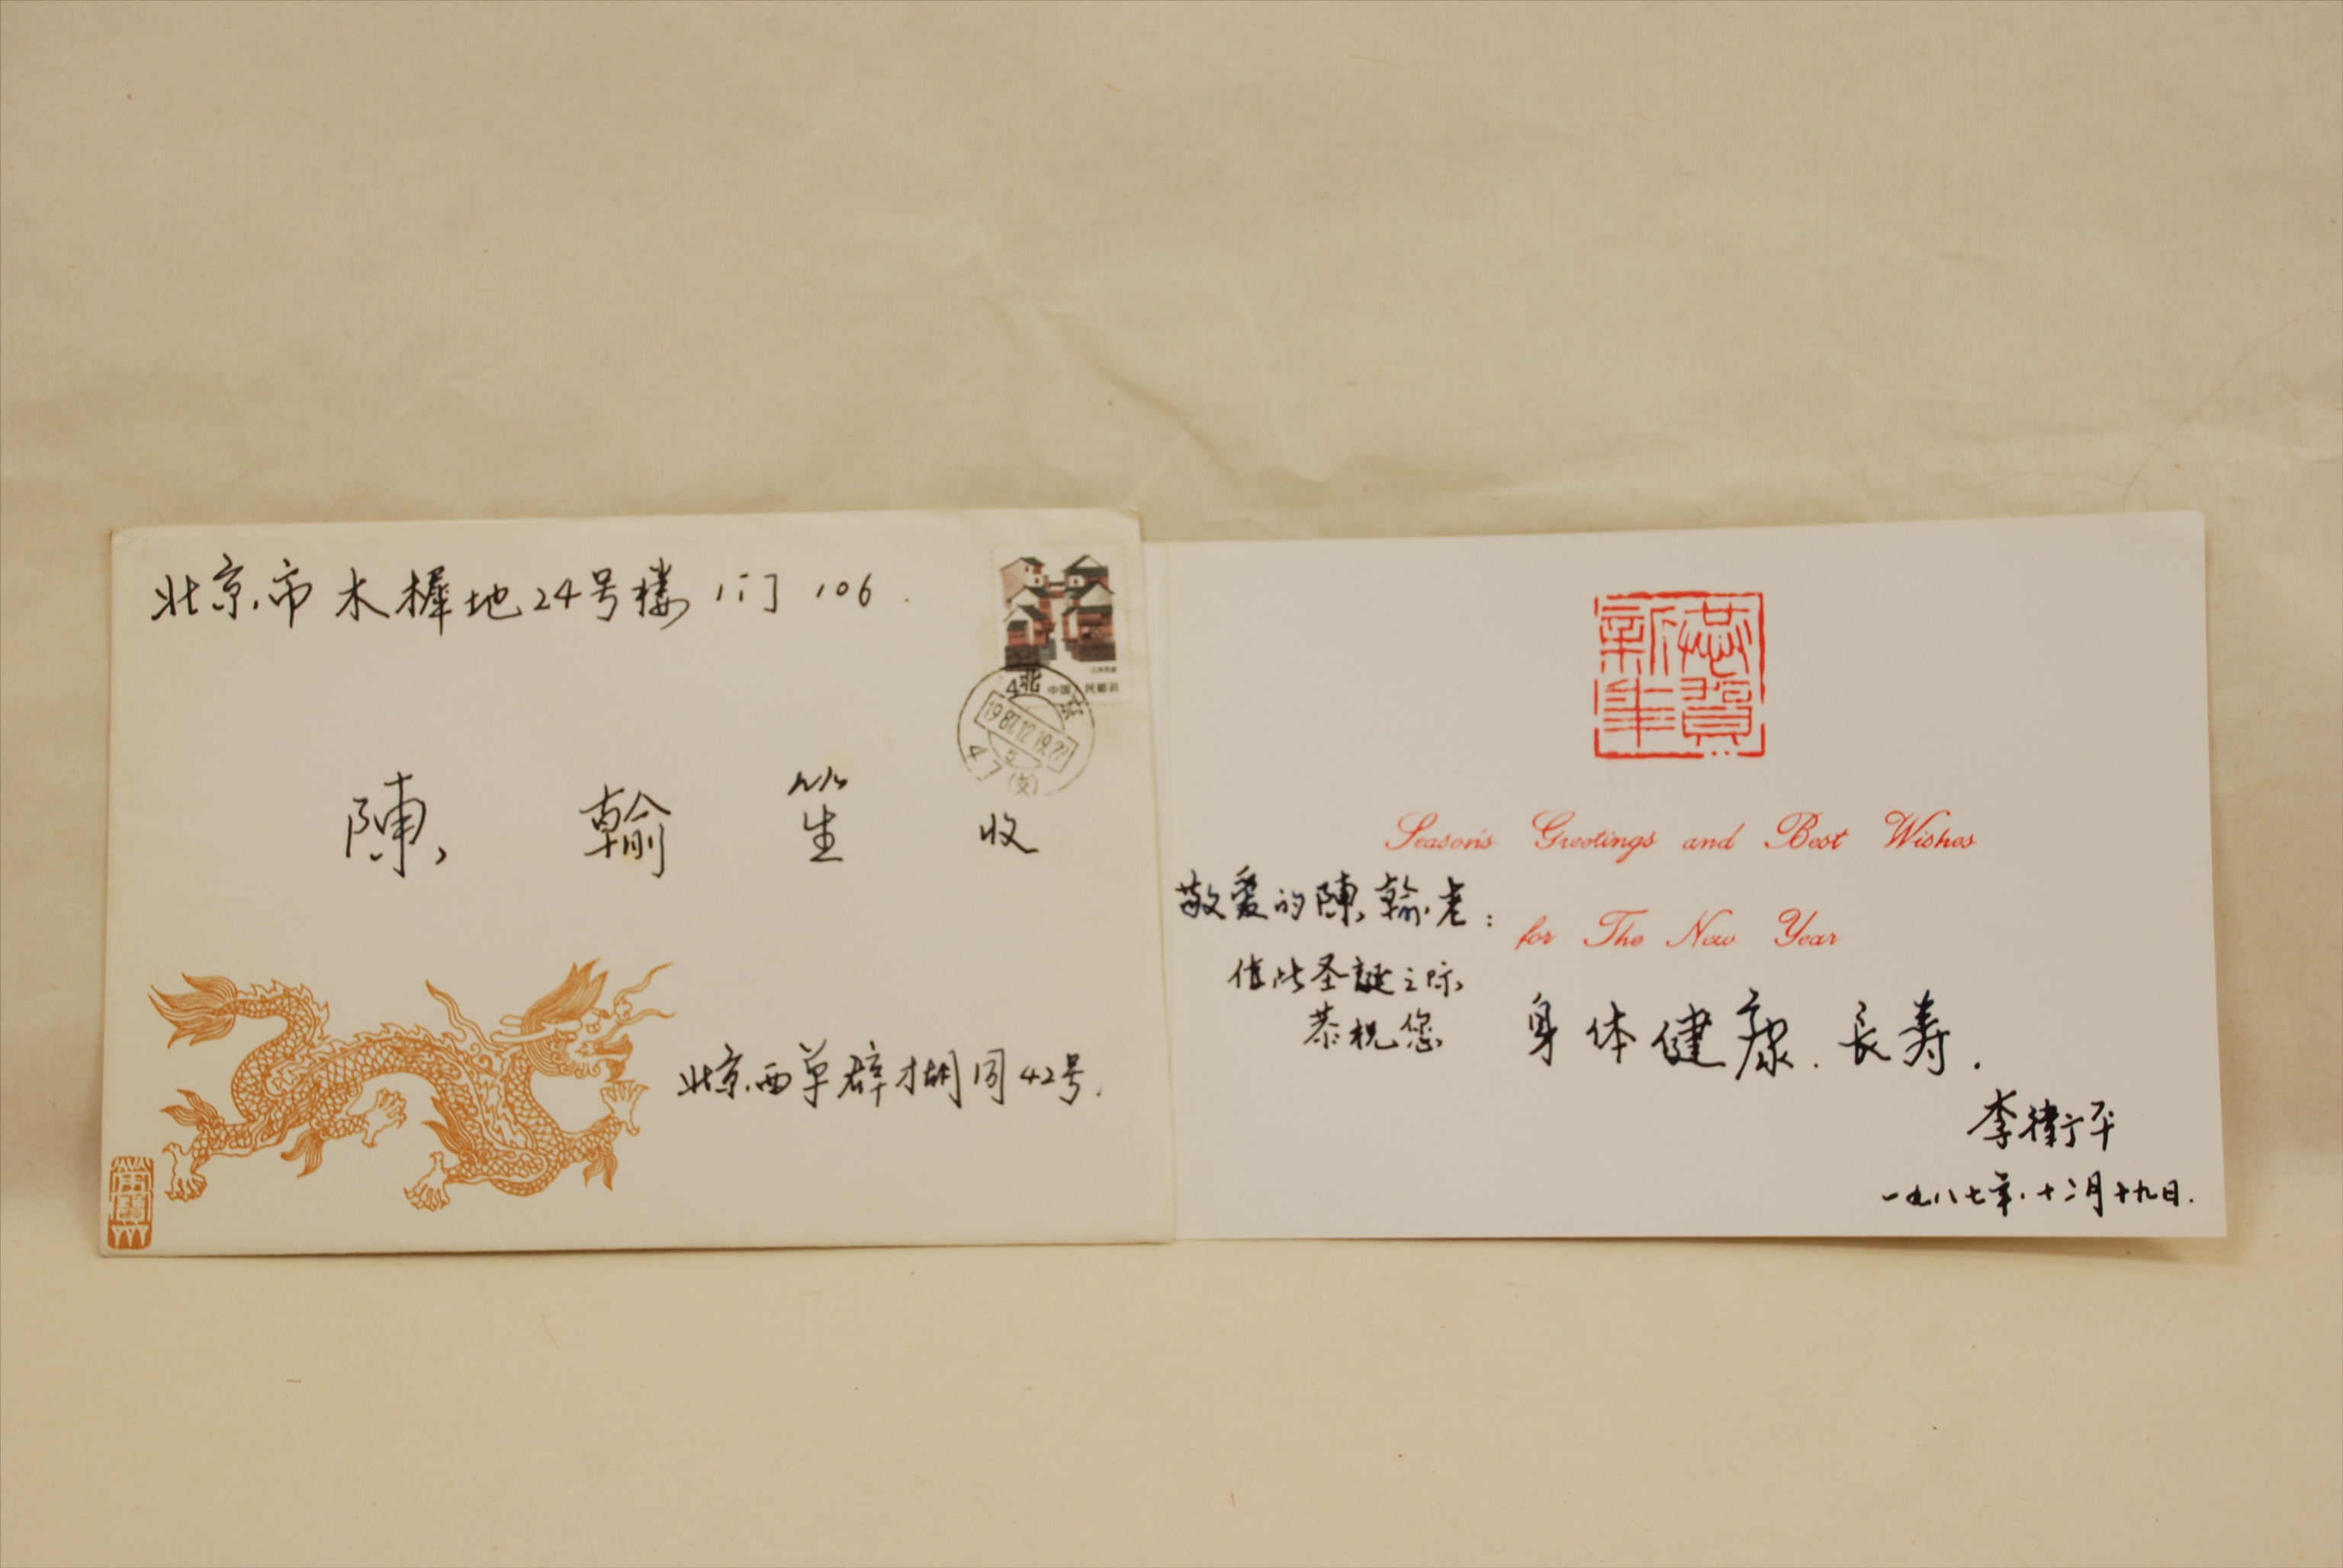 北京市木樨地24号楼1门106.
江苏民居
中国人民邮政
北京
1987.12.19.22
陳翰笙 收
北京西单辟才胡同42号.
恭賀
新年
Season's Greetings and Best Wishes
for The New Year
敬爱的陳翰老：
值此圣誕之际
恭祝您
身体健康.長寿.
李衛平
一九八七年.十二月十九日.